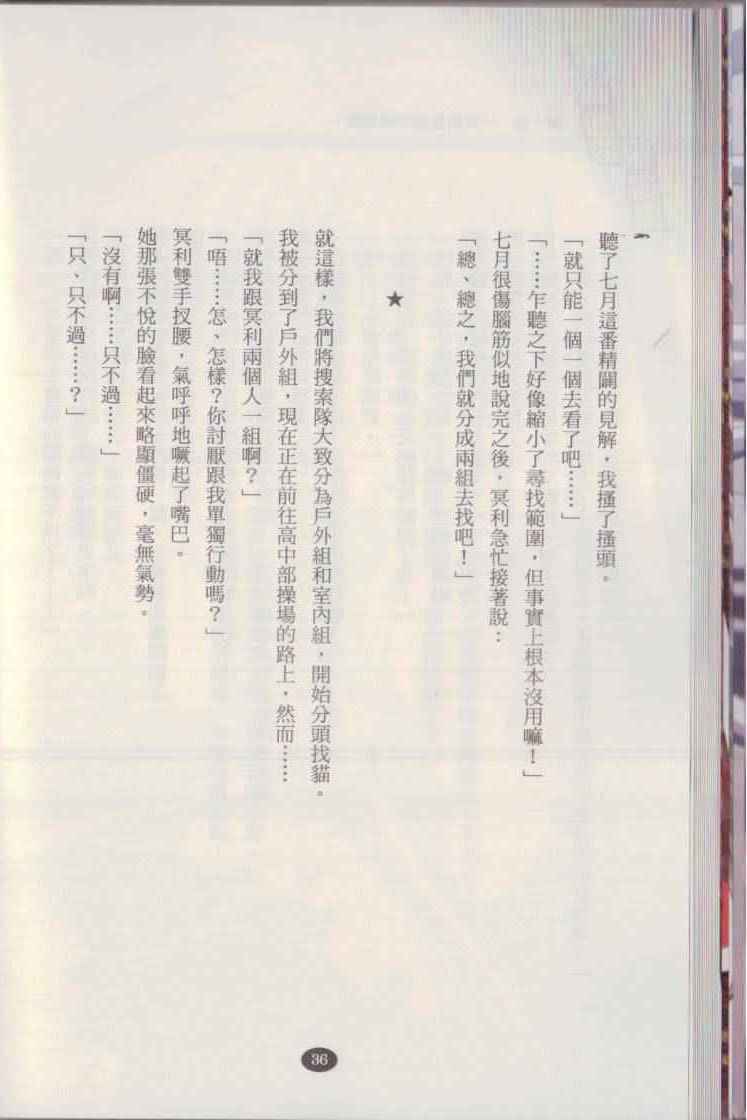 聽了七月這番精闢的見解，我搔了搔頭。
「就只能一個一個去看了吧……」
「……乍聽之下好像縮小了尋找範圍，但事實上根本沒用嘛！」
七月很傷腦筋似地說完之後，冥利急忙接著說：
「總、總之，我們就分成兩組去找吧！」
★
就這樣，我們將搜索隊大致分為戶外組和室內組，開始分頭找貓。
我被分到了戶外組，現在正在前往高中部操場的路上，然而……
「就我跟冥利兩個人一組啊？」
「唔……怎、怎樣？你討厭跟我單獨行動嗎？」
冥利雙手扠腰，氣呼呼地噘起了嘴巴。
她那張不悅的臉看起來略顯僵硬，毫無氣勢。
「沒有啊……只不過……」
「只、只不過……？」
36